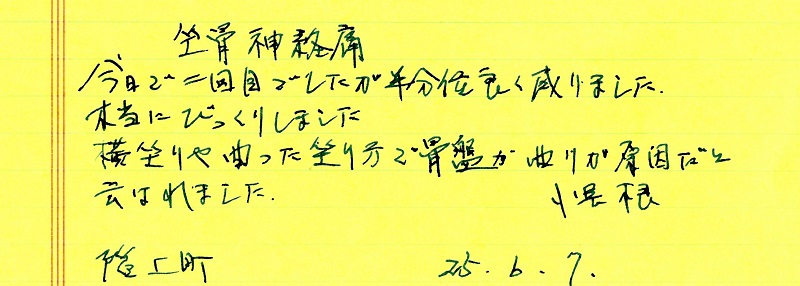 坐骨神経痛
今日で二回目でしたが半分位良く成りました.
本当にびっくりしました
横坐りや曲った坐り方で骨盤が曲りが原因だと
云はれました.
25.6.7.